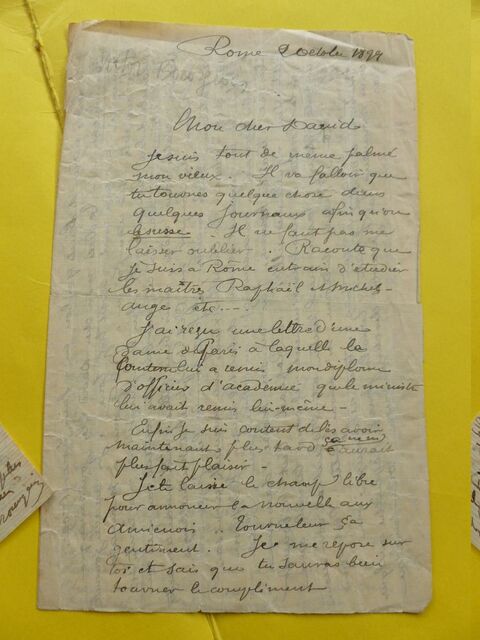 Rome 2 Octobre 1899
Mon cher David
Je suis tout de même palmé
mon vieux. Il va falloir que
tu tournes quelque chose dans
quelques journaux afin qu'on
le susse. Il ne faut pas me
laisser oublier. Raconte que
je suis à Rome entrain d'étudier
les maîtres Raphaël Michel-
ange etc....
J'ai reçu une lettre d'une
dame de Paris à laquelle la
a remis mon diplome
d'officier d'academie que le ministre
lui avait remis lui-même -
Enfin je suis content de les avoir
maintenant plus tard ça m'aurait
plus fait plaisir -
Je te laisse le champ libre
pour annoncer la nouvelle aux
Amienois .. Tourneleur ça
gentiment. Je me repose sur
toi et sais que tu sauras bien
tourner le compliment